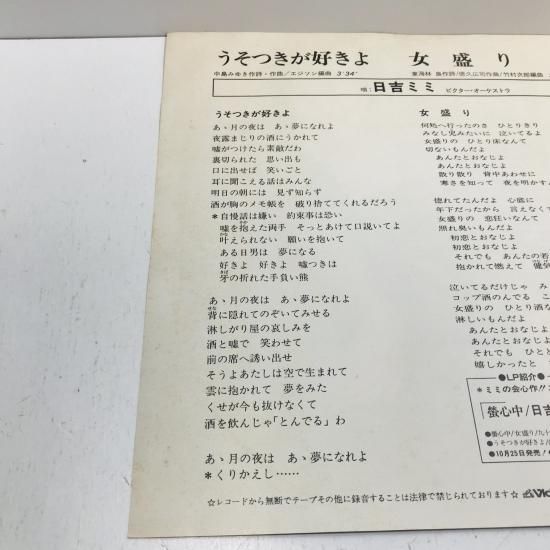 うそつきが好きよ　女盛り
中島みゆき作詩・作曲／エジソン編曲 3'34"
東海林 良作詩／徳久広司作曲／竹村次郎編曲
唄：日吉ミミ ビクター・オーケストラ
うそつきが好きよ
あゝ月の夜は　あゝ夢になれよ
夜露まじりの酒にうかれて
嘘がつけたら素敵だわ
裏切られた　思い出も
口に出せば　笑いごと
耳に聞こえる話はみんな
明日の朝には　見ず知らず
酒が胸のメモ帳を　破り捨ててくれるだろう
＊自慢話は嫌い　約束事は恐い
嘘を抱えた両手　そっとあけて口説いてよ
叶えられない　願いを抱いて
ある日男は　夢になる
好きよ　好きよ　嘘つきは
牙の折れた手負い熊
あゝ月の夜は　あゝ夢になれよ
背に隠れてのぞいてみせる
淋しがり屋の哀しみを
酒と嘘で　笑わせて
前の席へ誘い出せ
そうよあたしは空で生まれて
雲に抱かれて　夢をみた
くせが今も抜けなくて
酒を飲んじゃ「とんでる」わ
あゝ月の夜は　あゝ夢になれよ
＊くりかえし……
女盛り
何処へ行ったのさ　ひとりきり
みなし児みたいに　泣いてるよ
女盛りの　ひとり床なんて
切ないもんだよ
あんたとおなじよ
あんたとおなじよ
散り散り　背中あわせに
寒さを知って　夜を明かす
惚れてたんだよ　心底に
年下だったから　言えなくて
女盛りの　恋狂いなんて
照れ臭いもんだよ
初恋とおなじよ
初恋とおなじよ
それでも　あんたの若
抱かれて燃えて
泣いてるだけじゃ　み
コップ酒のんでる　こ
女盛りの　ひとり酒な
淋しいもんだよ
あんたとおなじよ
あんたとおなじよ
それでも　ひとと
嬉しかったと
●LP紹介●
＊ミミの会心作!!
螢心中／日吉
●螢心中／女盛り／九十
●うそつきが好きよ／
●10月25日発売！
☆レコードから無断でテープその他に録音することは法律で禁じられております☆
Vic